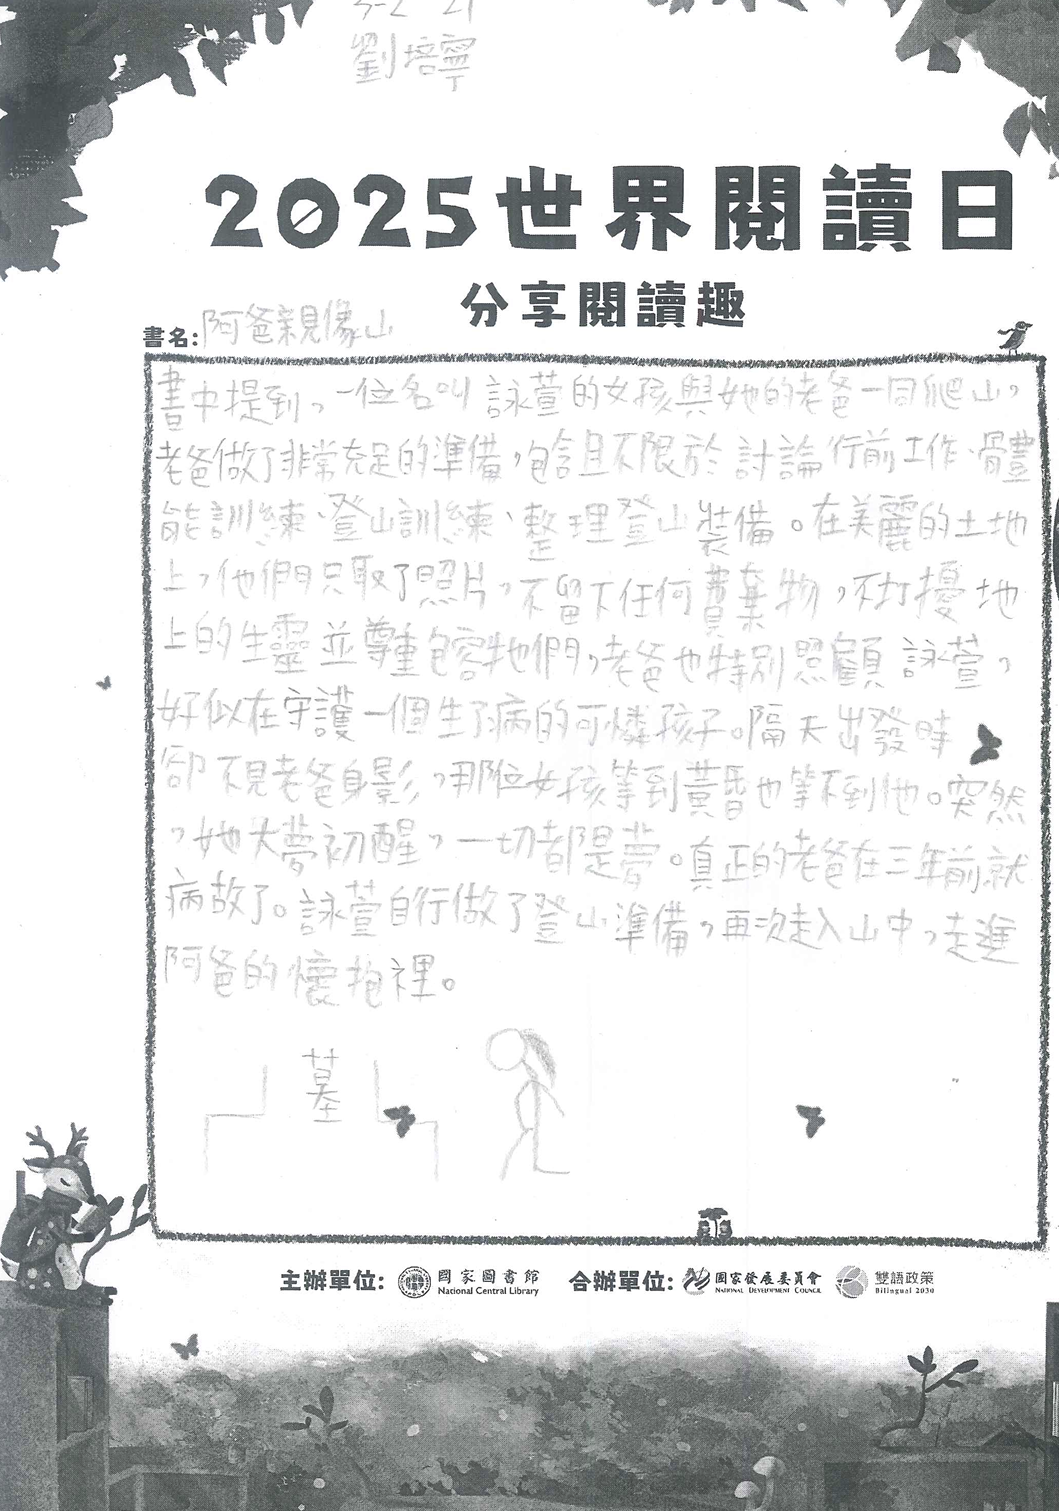 5-2 21
劉培寧
2025世界閱讀日
分享閱讀趣
書名:阿爸親像山
書中提到,一位名叫詠萱的女孩與她的老爸一同爬山,
老爸做了非常充足的準備,包含且不限於討論行前工作、體
能訓練、登山訓練、整理登山裝備。在美麗的土地
上,他們只取了照片,不留下任何費棄物,不打擾地
上的生靈並尊重包容牠們,老爸也特別照顧詠萱,
好似在守護一個生了病的可憐孩子。隔天出發時
卻不見老爸身影,那位女孩等到黃昏也等不到他。突然
,她大夢初醒,一切都是夢。真正的老爸在三年前就
病故了。詠萱自行做了登山準備,再次走入山中,走進
阿爸的懷抱裡。
墓
主辦單位: 國家圖書館 National Central Library 合辦單位: 國家發展委員會 NATIONAL DEVELOPMENT COUNCIL 雙語政策 Bilingual 2030